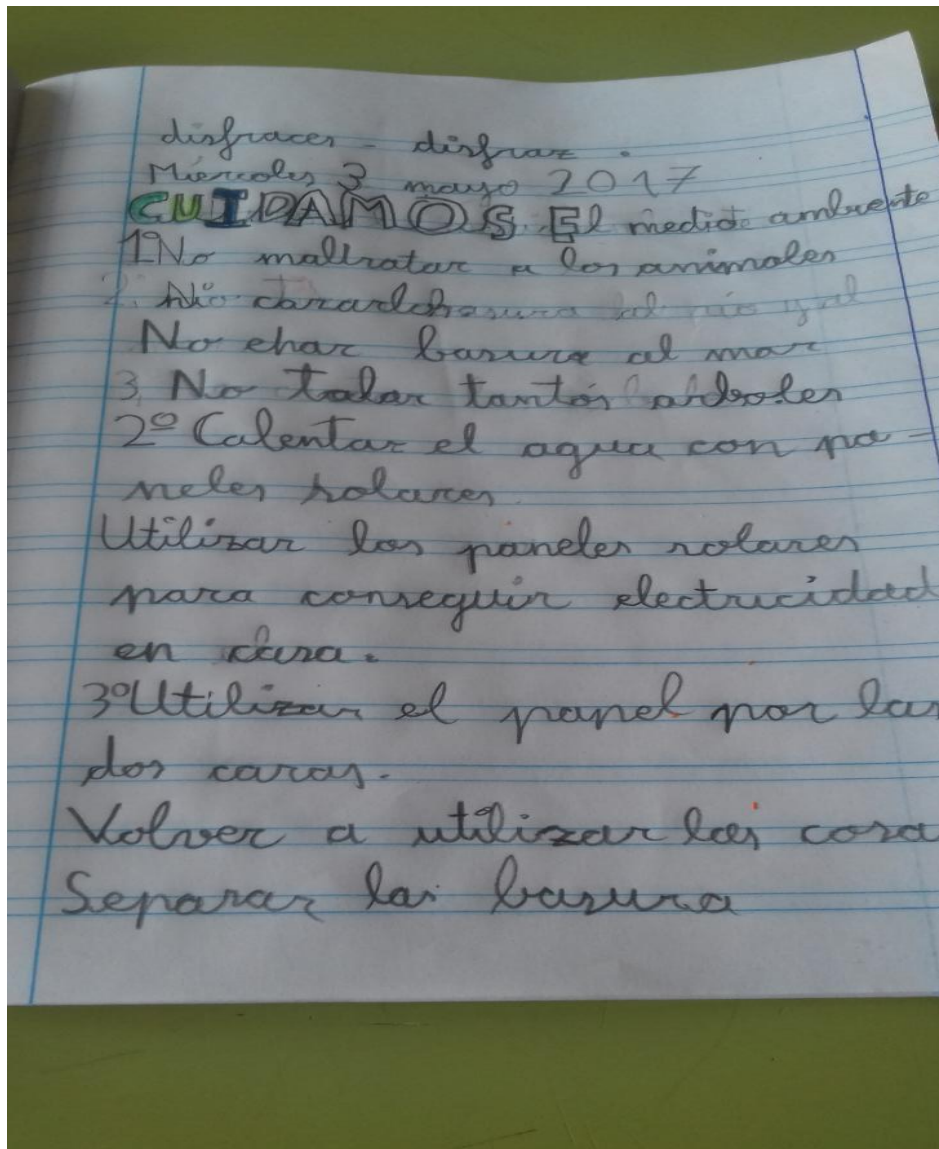 disfraces - disfraz.
Miércoles 3 mayo 2017
CUIDAMOS El medio ambiente
1º No maltratar a los animales
2. No basura al río y al
No echar basura al mar
3. No talar tantos arboles
2º Calentar el agua con pa-
neles solares
Utilizar los paneles solares
para conseguir electricidad
en casa.
3º Utilizar el papel por las
dos caras.
Volver a utilizar las cosa
Separar la basura